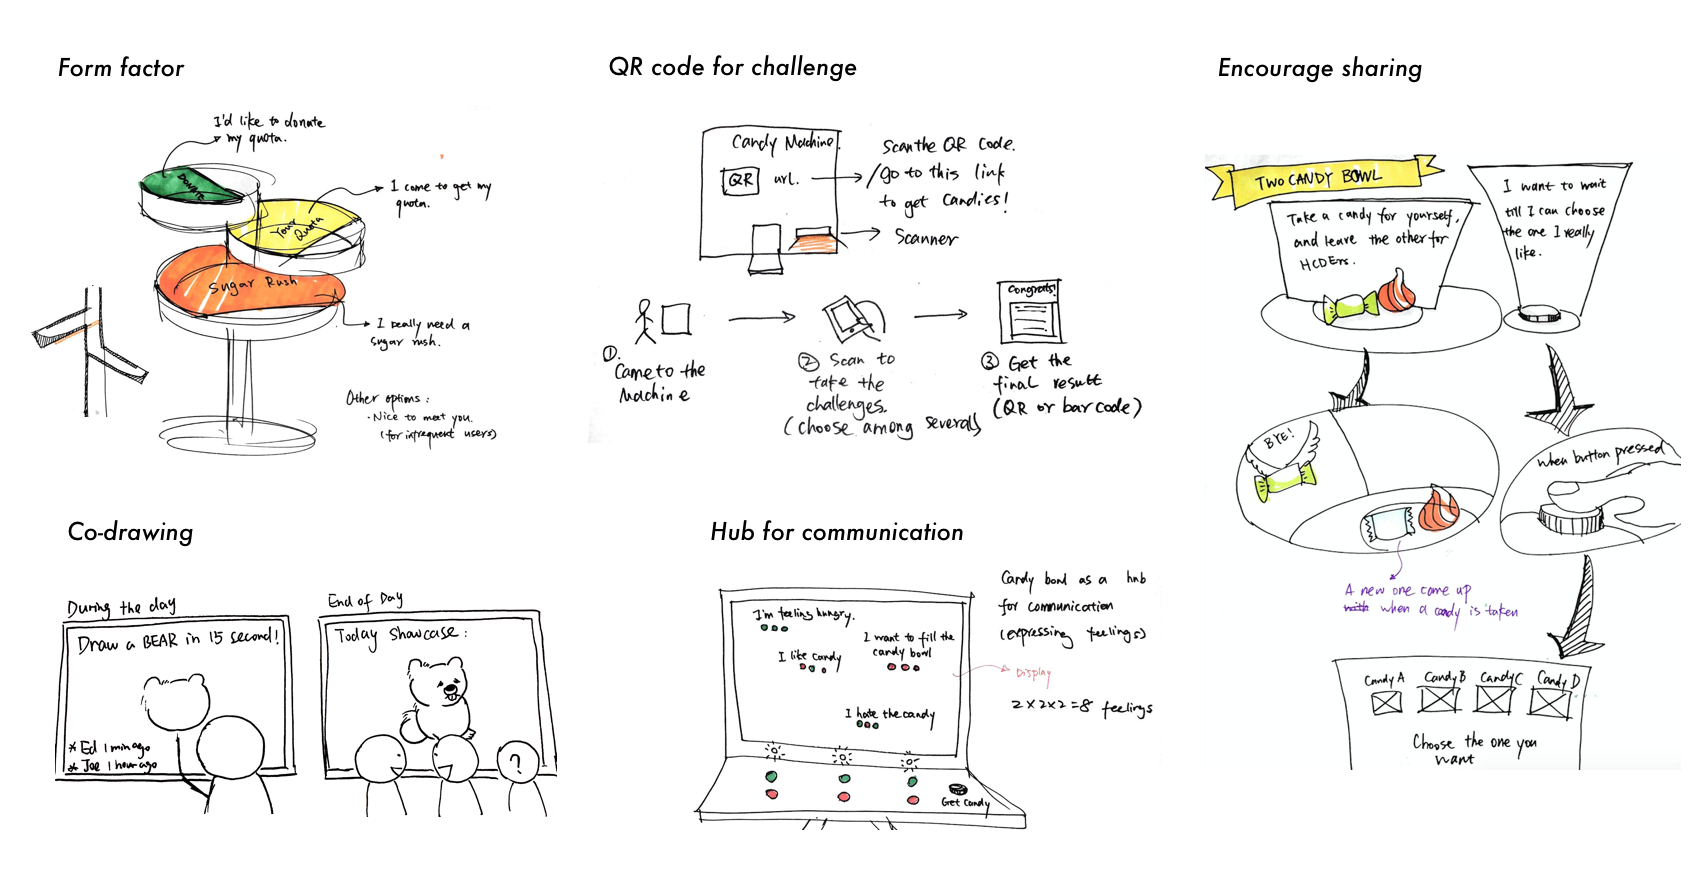 Form factor
I'd like to donate
my quota.
DONATE
I come to get my
quota.
Your
Quota
Sugar Rush
I really need a
sugar rush.
Other options:
· Nice to meet you.
(for infrequent users)
QR code for challenge
Candy Machine.
QR
url.
Scan the QR Code.
/go to this link
to get Candies!
Scanner
Congrats!
①.
Came to the
Machine
② Scan to
take the
challenges.
(choose among several)
③ Get the
final result
(QR or barcode)
Encourage sharing
TWO CANDY BOWL
Take a candy for yourself,
and leave the other for
HCDErs.
I want to wait
till I can choose
the one I really
like.
BYE!
When button pressed
A new one came up
when a candy is taken
Candy A
Candy B
Candy C
Candy D
Choose the one you
want
Co-drawing
During the day
Draw a BEAR in 15 second!
* Ed 1 min ago
* Joe 1 hour ago
End of Day
Today Showcase:
?
Hub for communication
I'm feeling hungry.
I like candy
I want to fill the
candy bowl
I hate the candy
Get Candy
Candy bowl as a hub
for communication
(expressing feelings)
Display
2×2×2=8 feelings